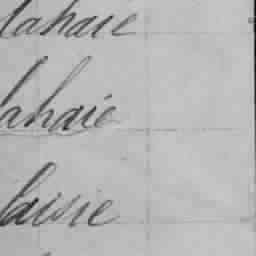 lahaie
lahaie
laisie